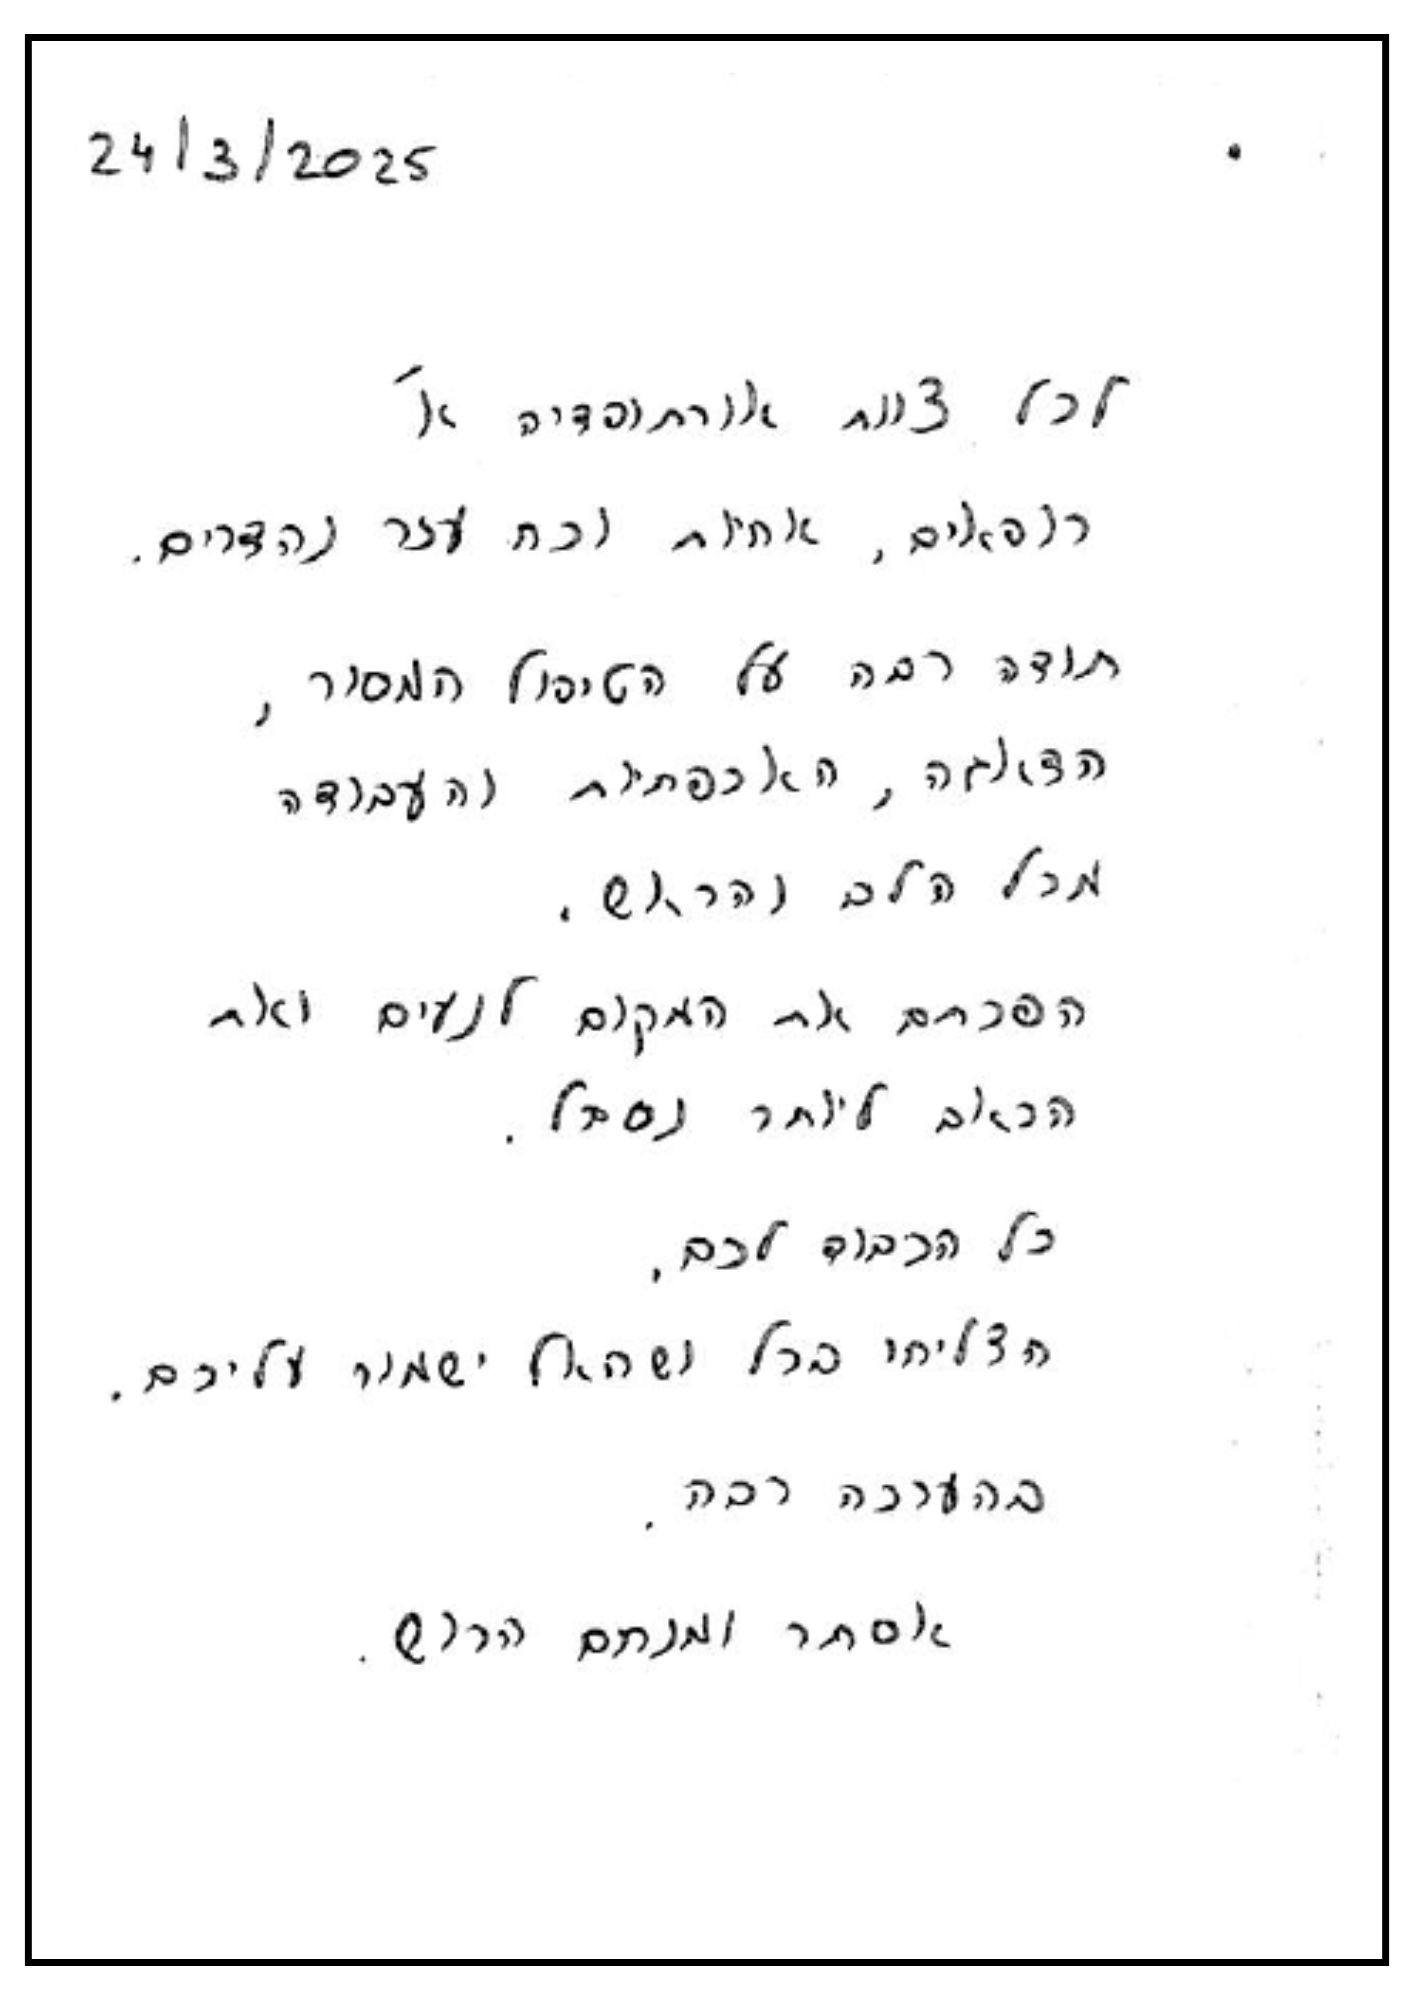 24/3/2025
לכל צוות אורתופדיה א'
רופאים, אחיות וכח עזר נהדרים.
תודה רבה על הטיפול המסור,
הדאגה, האכפתיות והעבודה
מכל הלב והראש.
הפכתם את המקום לנעים ואת
הכאב ליותר נסבל.
כל הכבוד לכם,
הצליחו בכל ושהאל ישמור עליכם.
בהערכה רבה.
אסתר ומנחם הרוש.